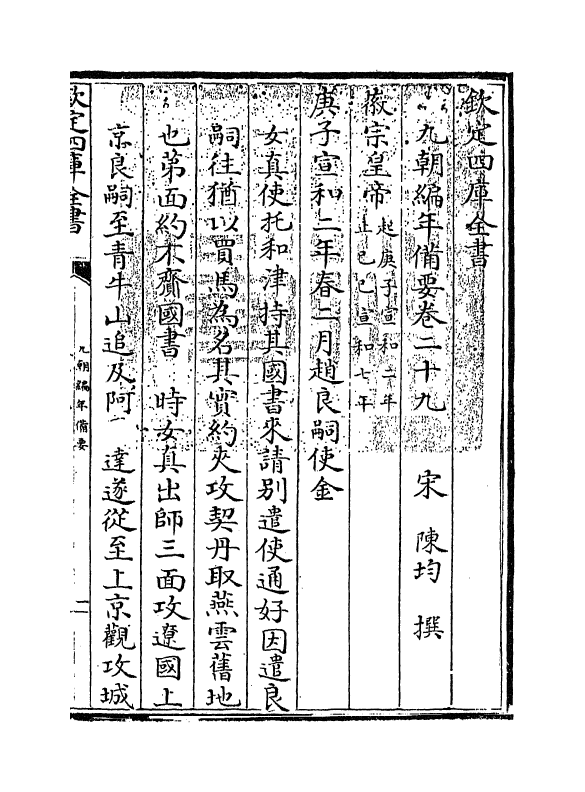 欽定四庫全書
九朝編年備要卷二十九
宋 陳均 撰
徽宗皇帝
起庚子宣和二年
止乙巳宣和七年
庚子宣和二年春二月趙良嗣使金
女真使托和津持其國書來請别遣使通好因遣良
嗣往猶以買馬為名其實約夾攻契丹取燕雲舊地
也第面約不齎國書 時女真出師三面攻遼國上
京良嗣至青牛山追及阿 達遂從至上京觀攻城
欽定四庫全書
九朝編年備要